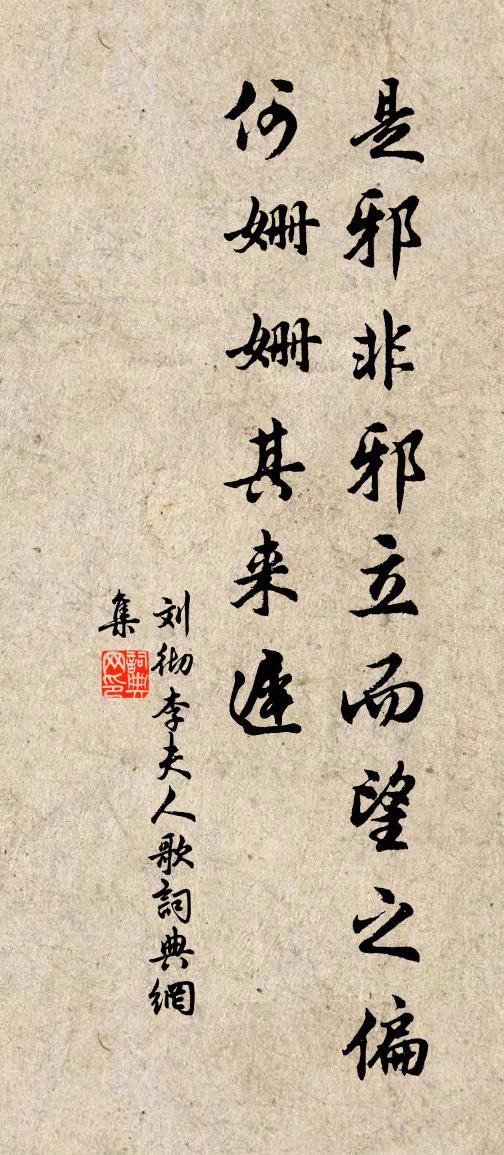 是邪非邪立而望之偏
何姗姗其来遲
刘彻李夫人歌詞典網
集
詞典网印